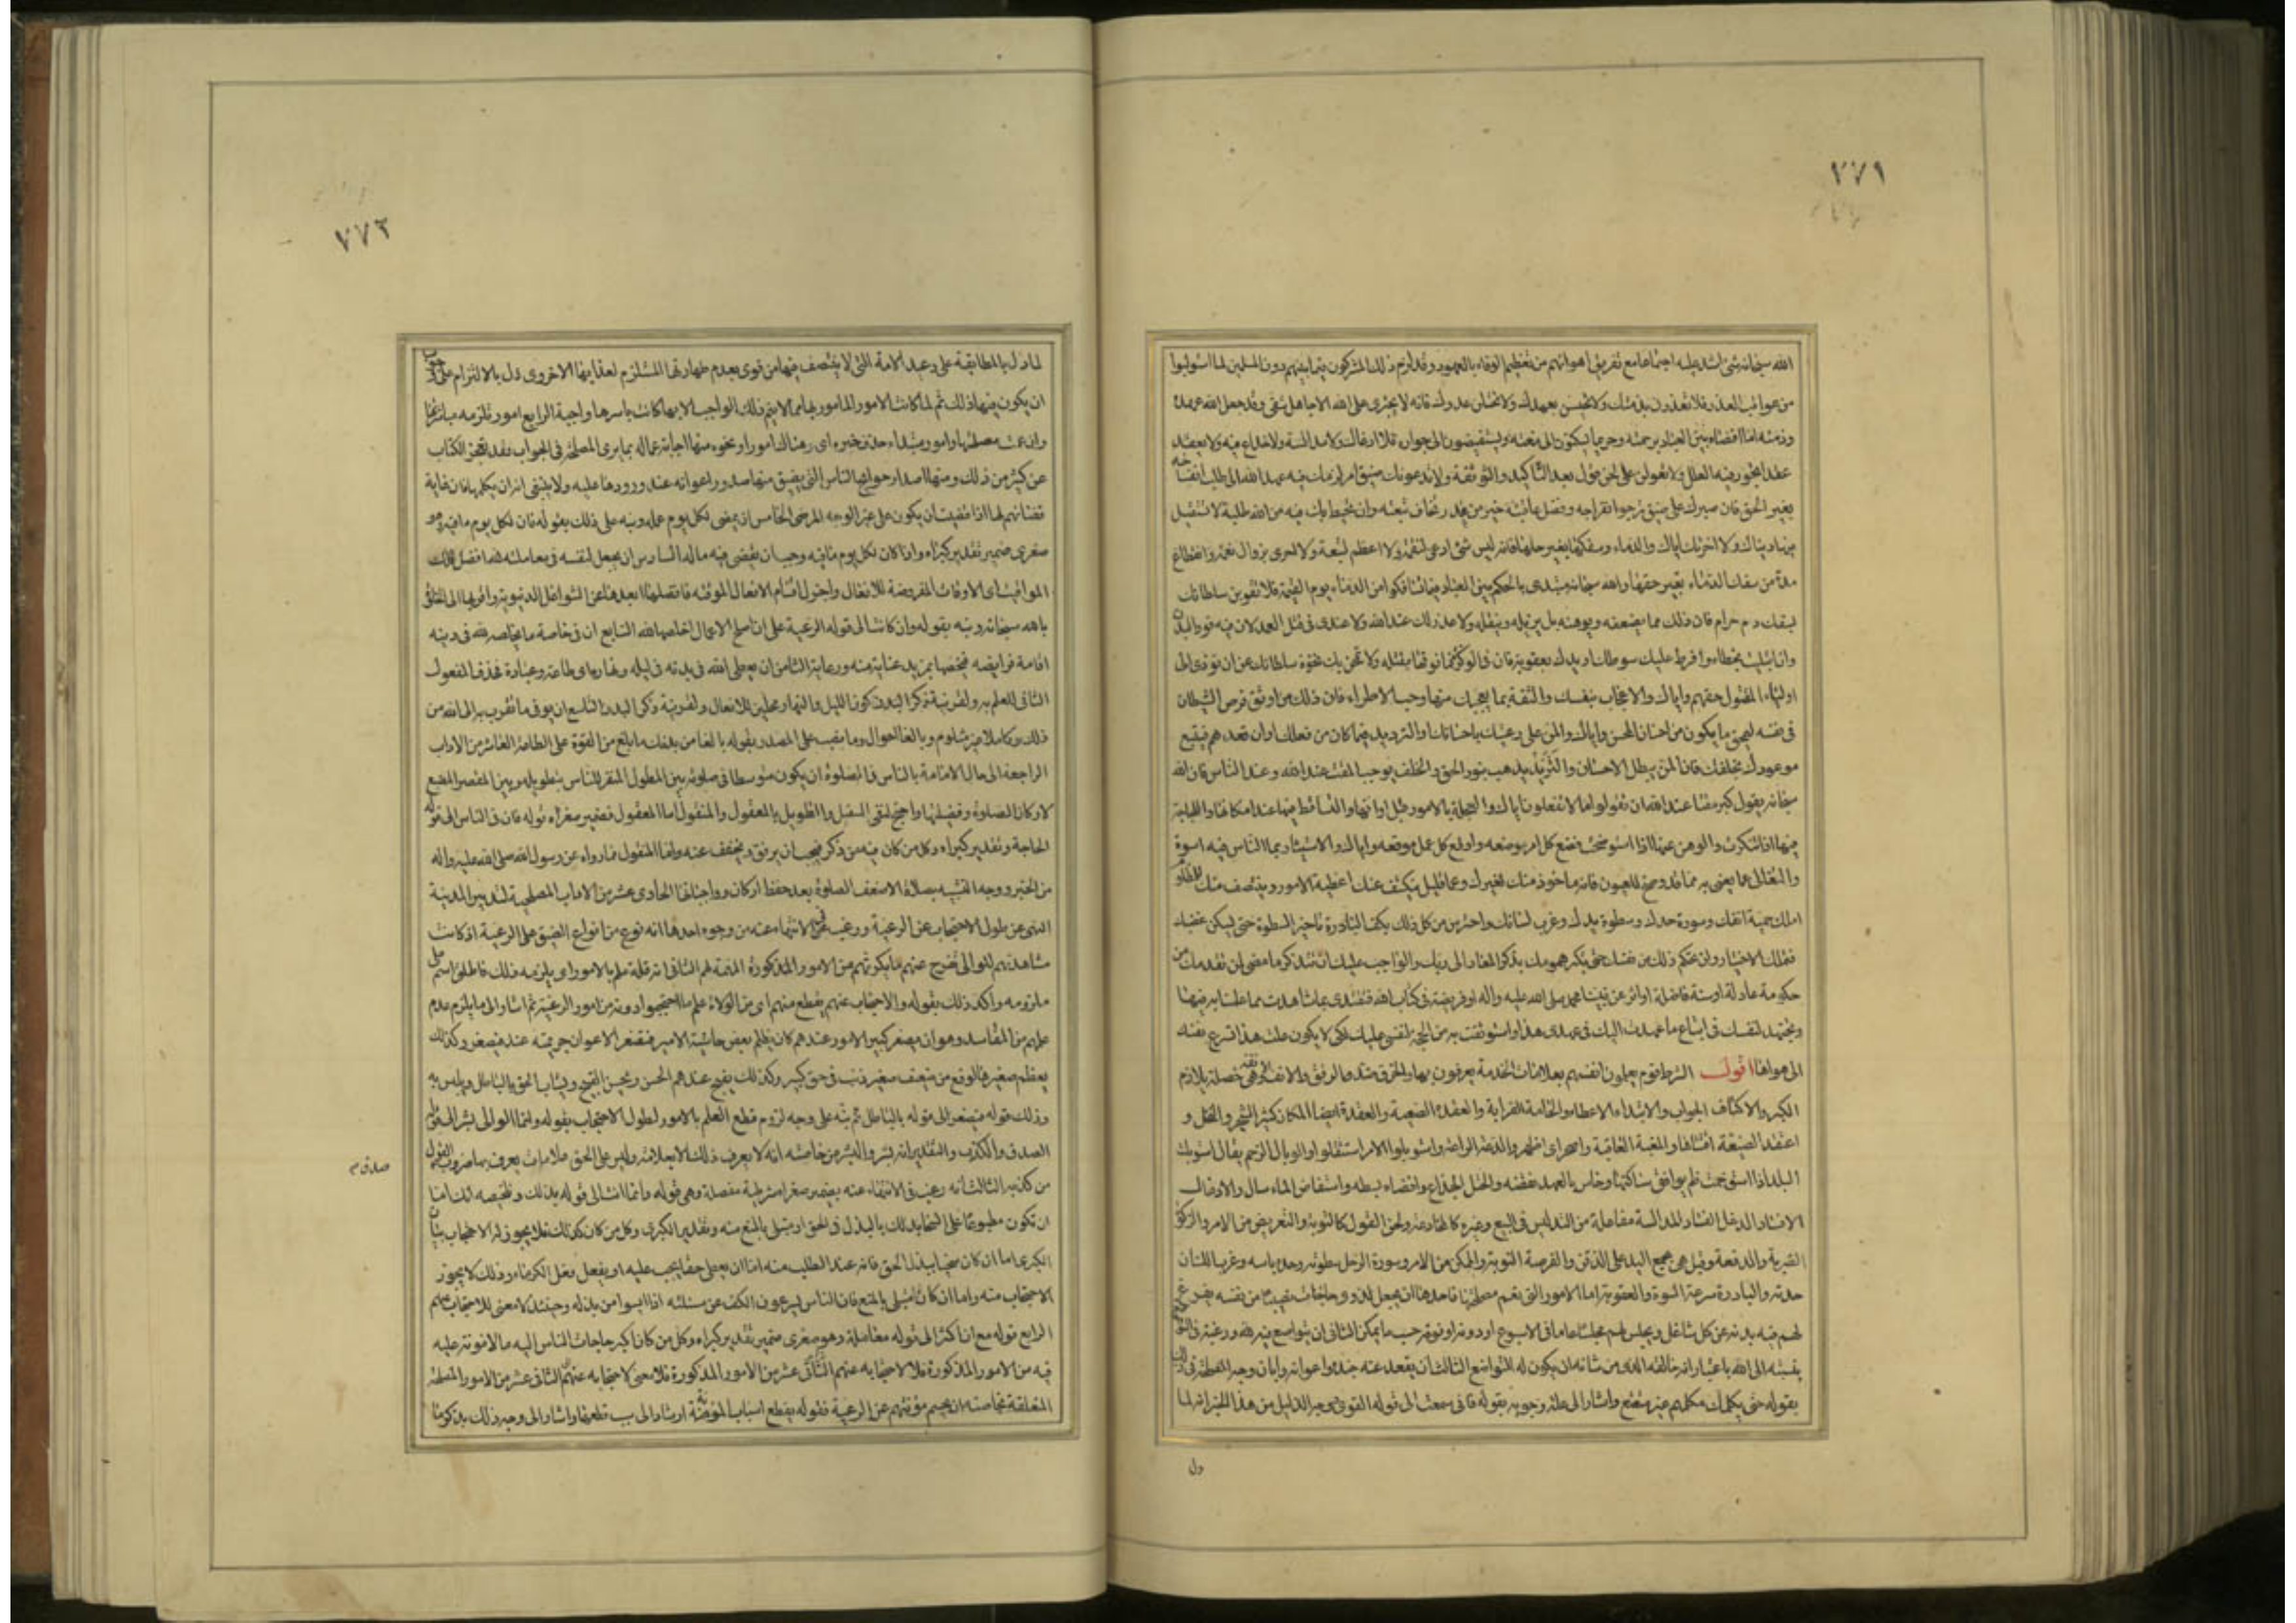 ٧٧١
الله سبحانه شئ الناس اشد عليه اجتماعا مع تفريق اهوائهم من تعظيم الوفاء بالعهود وقد لزم ذلك المشركون فيما بينهم دون المسلمين لما استوبلوا
من عواقب الغدر فلا تغدرن بذمتك ولا تخيسن بعهدك ولا تختلن عدوك فانه لا يجترى على الله الا جاهل شقى وقد جعل الله عهده
وذمته امنا افضاه بين العباد برحمته وحريما يسكنون الى منعته ويستفيضون الى جواره فلا ادغال ولا مدالسة ولا خداع فيه ولا تعقد
عقدا تجوز فيه العلل ولا تعولن على لحن قول بعد التاكيد والتوثقة ولا يدعونك ضيق امر لزمك فيه عهد الله الى طلب انفساخه
بغير الحق فان صبرك على ضيق ترجوا انفراجه وفضل عاقبته خير من غدر تخاف تبعته وان تحيط بك فيه من الله طلبة لا تستقيل
فيها دنياك ولا اخرتك اياك والدماء وسفكها بغير حلها فانه ليس شئ ادعى لنقمة ولا اعظم لتبعة ولا احرى بزوال نعمة وانقطاع
مدة من سفك الدماء بغير حقها والله سبحانه مبتدى بالحكم بين العباد فيما تسافكوا من الدماء يوم القيمة فلا تقوين سلطانك
بسفك دم حرام فان ذلك مما يضعفه ويوهنه بل يزيله وينقله ولا عذر لك عند الله ولا عندى فى قتل العمد لان فيه قود البدن
وان ابتليت بخطاء وافرط عليك سوطك او يدك بعقوبة فان فى الوكزة فما فوقها مقتلة فلا تطمحن بك نخوة سلطانك عن ان تؤدى الى
اولياء المقتول حقهم واياك والاعجاب بنفسك والثقة بما يعجبك منها وحب الاطراء فان ذلك من اوثق فرص الشيطان
فى نفسه ليمحق ما يكون من احسان المحسن واياك والمن على رعيتك باحسانك او التزيد فيما كان من فعلك او ان تعدهم فتتبع
موعودك بخلفك فان المن يبطل الاحسان والتزيد يذهب بنور الحق والخلف يوجب المقت عند الله وعند الناس قال الله
سبحانه يقول كبر مقتا عند الله ان تقولوا ما لا تفعلون اياك والعجلة بالامور قبل اوانها او التساقط فيها عند امكانها او اللجاجة
فيها اذا تنكرت او الوهن عنها اذا استوضحت فضع كل امر موضعه واوقع كل عمل موقعه واياك والاستيثار بما الناس فيه اسوة
والتغابى عما يعنى به مما قد وضح للعيون فانه ماخوذ منك لغيرك وعما قليل ينكشف عنك اغطية الامور وينتصف منك للمظلوم
املك حمية انفك وسورة حدك وسطوة يدك وغرب لسانك واحترس من كل ذلك بكف البادرة تاخير السطوة حتى يسكن غضبك
فتملك الاختيار ولن تحكم ذلك من نفسك حتى تكثر همومك بذكر المعاد الى ربك والواجب عليك ان تتذكر ما مضى لمن تقدمك من
حكومة عادلة او سنة فاضلة او اثر عن نبينا محمد صلى الله عليه واله او فريضة فى كتاب الله فتقتدى بما شاهدت بما عملنا به فيها
وتجتهد لنفسك فى اتباع ما عهدت اليك فى عهدى هذا واستوثقت به من الحجة لنفسى عليك لكى لا يكون لك علة عند تسرع نفسك
الى هواها اقول الشرط قوم يعلمون انفسهم بعلامات الخدمة يعرفون بها والخرق ضد الرفق والانف الانفة وهى خصلة تلازم
الكبر والاكناف الجوانب والابتداء الاعطاء والخاصة القرابة والعقدة الضيعة والعقدة ايضا المكان كثير الشجر والنخل و
اعتقد الضيعة اقتناها والمغبة العاقبة واصحر اى اظهر والدعة الراحة واستوبلوا الامر استثقلوا والوبال الوخم يقال استوبلت
البلد اذا استوخمت فلم يوافق ساكنها وخاس بالعهد نقضه والختل الخداع وافضاه بسطه واستفاض الماء سال والادغال
الافساد الدغل الفساد المدالسة مفاعلة من التدليس فى البيع وغيره كالمخادعة ولحن القول كالتورية والتعريض من الامر والوكزة
الضربة والدفعة وقيل هى بجمع اليد على الذقن والفرصة النوبة والتمكن من الامر وسورة الرجل سطوته وحدة باسه وغرب اللسان
حدته والبادرة سرعة السوءة والعقوبة واما الامور التى تعم مصلحتها فاحدها ان يجعل لذوى الحاجات نصيبا من نفسه يفرغ
لهم فيه بدنه عن كل شاغل ويجلس لهم مجلسا عاما فى الاسبوع او دونه او فوقه حسب ما يمكن الثانى ان يتواضع فيه لله ورغبه فى التواضع
بنسبته الى الله باعتبار انه خالقه الذى من شانه ان يكون له التواضع الثالث ان يقعد عنه جنده واعوانه وابان وجه المصلحة فى ذلك
بقوله حتى يكلمك مكلمهم غير متتعتع واشار الى علة وجوبه بقوله فانى سمعت الى قوله القوى ووجه الدليل من هذا الخبر انه لما
دل
٧٧٢
لما دل بالمطابقة على وعيد الامة التى لا ينتصف فيها من قوى بعدم طهارتها المستلزم لعذابها الاخروى دل بالالتزام على وجوب
ان يكون فيها ذلك ثم لما كانت الامور المامور بها مما لا يتم ذلك الواجب الا بها كانت باسرها واجبة الرابع امور تلزمه مباشرتها
وان عمت مصلحتها وامور مبتداء حذف خبره اى وهناك امور او نحوه منها اجابة عماله بما يرى المصلحة فى الجواب فقد يعجز الكتاب
عن كثير من ذلك ومنها اصدار حوائج الناس التى يضيق منها صدور اعوانه عند ورودها عليه ولا ينبغى ان يكلها فان غاية
قضائهم لها اذا قضيت ان يكون على غير الوجه المرضى الخامس ان يمضى لكل يوم عمله ونبه على ذلك بقوله فان لكل يوم ما فيه وهو
صغرى ضمير تقدير كبراه واذا كان لكل يوم ما فيه وجب ان يقضى فيه ما له السادس ان يجعل لنفسه فى معاملته لله افضل تلك
المواقيت اى الاوقات المفروضة للافعال واجزل اقسام الافعال الموقتة فافضلها ابعدها عن الشواغل الدنيوية واقربها الى الخلوة
بالله سبحانه ونبه بقوله وان كانت الى قوله الرعية على ان اصلح الاعمال اخلصها لله السابع ان فى خاصة ما يخلصه لله فى دينه
اقامة فرايضه فيخصها بمزيد عناية منه ورعاية الثامن ان يعطى الله فى بدنه فى ليله ونهاره اى طاعة وعبادة فحذف المفعول
الثانى للعلم به ولقرينة ذكر البدن كون الليل والنهار محلين للافعال ولقرينة ذكر البدن التاسع ان يوفى ما تقرب به الى الله من
ذلك وكاملا غير مثلوم وبالغا احوال وما نصب على المصدر بقوله بالغا من بدنك ما بلغ من القوة على الطاعة العاشر من الاداب
الراجعة الى حال الامامة بالناس فى الصلوة ان يكون متوسطا فى صلوته بين المطول المنفر للناس بتطويله وبين المقصر المضيع
لاركان الصلوة وفضيلتها واحتج لنفى التنفيل والتطويل بالمعقول والمنقول اما المعقول فضمير صغراه قوله فان فى الناس الى قوله
الحاجة وتقدير كبراه وكل من كان فيه من ذكر فيجب ان يرفق ويخفف عنه واما المنقول فما رواه عن رسول الله صلى الله عليه واله
من الخبر ووجه التشبيه بصلاة الاضعف الصلوة بعد حفظ اركانه وواجباتها الحادى عشر من الاداب المصلحية لتدبير المدينة
النهى عن طول الاحتجاب عن الرعية ورغب فى الانتهاء عنه من وجوه احدها انه نوع من انواع الضيق على الرعية اذ كانت
مشاهدتهم للوالى تفرج عنهم ما يكربهم من الامور المذكورة المهمة لهم الثانى انه قلة علم بالامور اى يلزمه ذلك فاطلق اسم على
ملزومه واكد ذلك بقوله والاحتجاب عنهم يقطع منهم اى من الولاة علم ما احتجبوا دونه من امور الرعية ثم اشار الى ما يلزم عدم
علمهم من المفاسد وهو ان يصغر كبير الامور عندهم كان يظلم بعض حاشية الامير فتصغر الاعوان جريمته عنده فيصغر وكذلك
يعظم صغيرها لو وقع من ضعيف صغير ذنب فى حق كبير وكذلك يقبح عندهم الحسن ويحسن القبيح ويشاب الحق بالباطل ويلبس به
وذلك قوله فيصغر الى قوله بالباطل ثم نبه على وجه لزوم قطع العلم بالامور لطول الاحتجاب بقوله وانما الوالى بشر الى قوله
الصدق والكذب والتقدير انه بشر والبشر من خاصته انه لا يعرف ذلك الا بعلامة وليس على الحق علامات يعرف بها ضروب القول
صدق م
من كذبه الثالث انه رغب فى الانتهاء عنه بضمير صغراه شرطية منفصلة وهى قوله وانما انت الى قوله بذلك وتلخيصه انك اما
ان تكون مطبوعا على السخا بذلك بالبذل فى الحق او مبتلى بالمنع منه وتقدير الكبرى وكل من كان كذلك فلا يجوز له الاحتجاب بيان
الكبرى اما ان كان سخيا ببذل الحق فانه عند الطلب منه اما ان يعطى حقا يجب عليه او يفعل فعل الكرماء وذلك لا يجوز
الاحتجاب منه واما ان كان مبتلى بالمنع فان الناس يسرعون الكف عن مسئلته اذا ايسوا من بذله وحينئذ لا معنى للاحتجاب عنهم
الرابع قوله مع ان اكثر الى قوله معاملة وهو صغرى ضمير تقدير كبراه وكل من كان اكثر حاجات الناس اليه ما لا مؤنة عليه
فيه من الامور المذكورة فلا معنى لاحتجابه عنهم الثانى عشر من الامور المصلحية
المتعلقة بخاصته ان يحسم مؤنتهم عن الرعية فقوله يقطع اسباب المؤنة ارشاد الى سبب قطعها واشار الى وجه ذلك بذكر ما